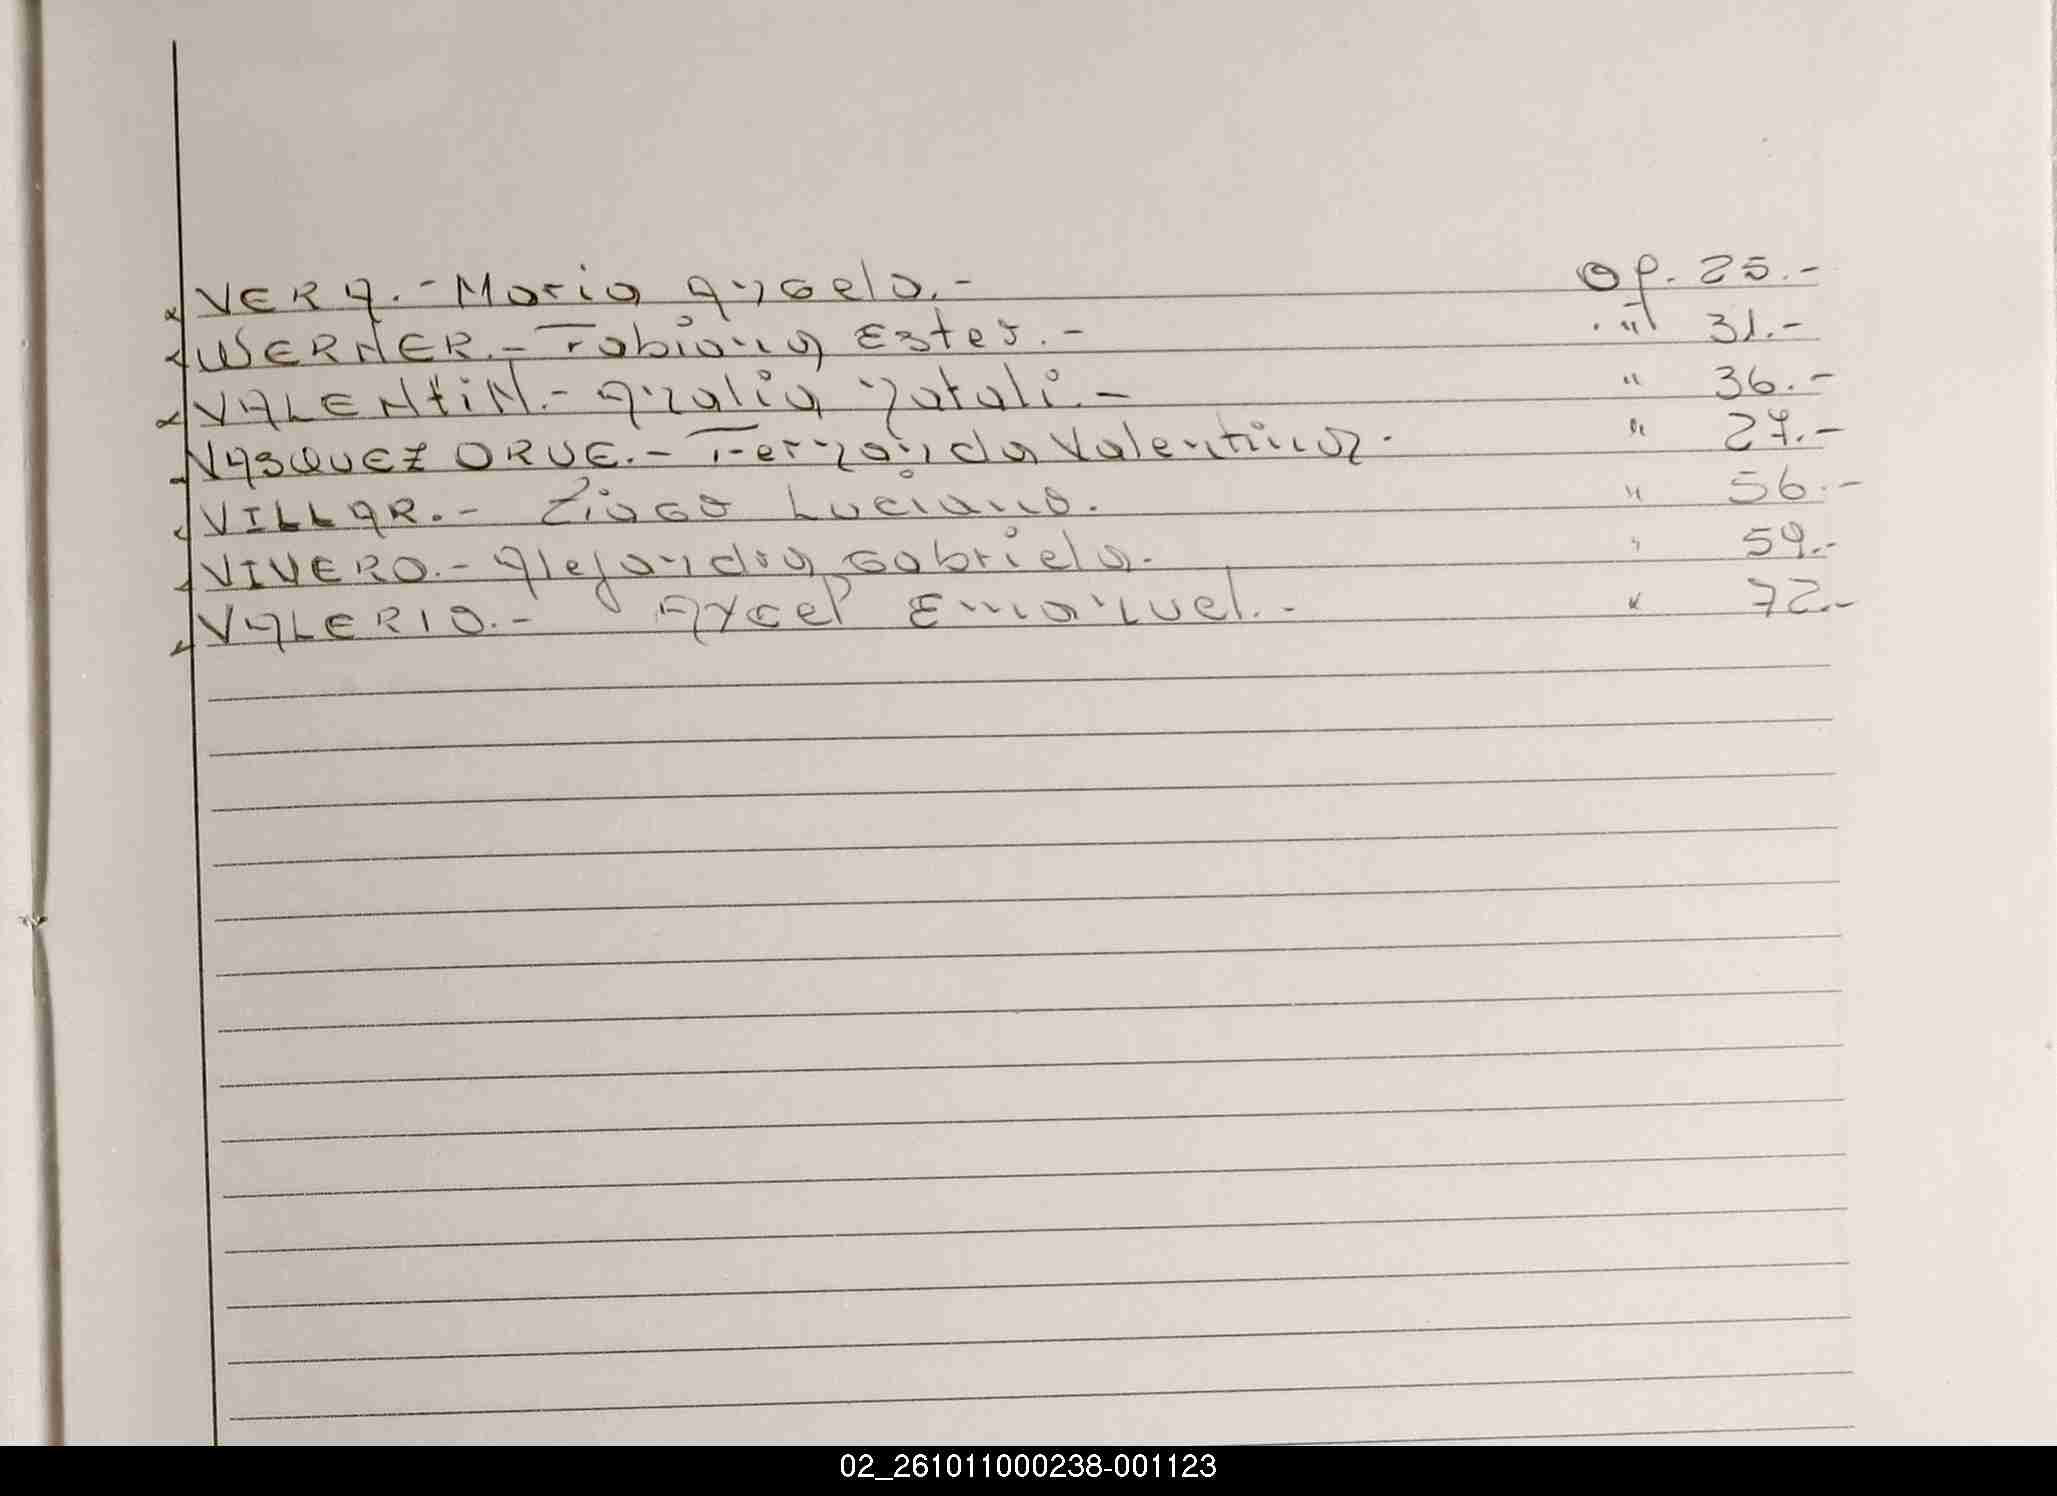 VERA.- Maria Angela.- Op. 25.-
WERNER.- Fabiana Ester.- " 31.-
VALENTIN.- Analia Natali.- " 36.-
VASQUEZ ORUE.- Fernanda Valentina. " 27.-
VILLAR.- Ciago Luciano. " 56.-
VIVERO.- Alejandra Gabriela. " 59.-
VALERIO.- Axcel Emanuel.- " 72.-
02_261011000238-001123